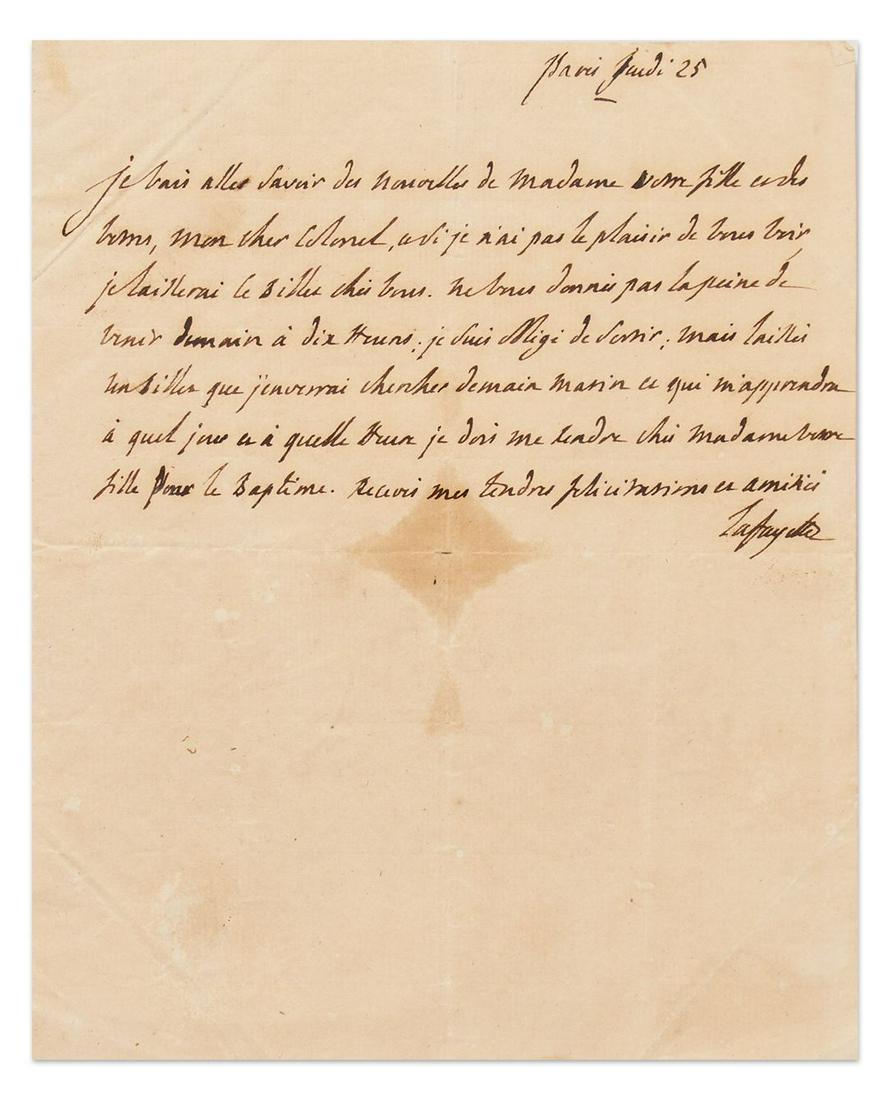 Paris Jeudi 25
je vais aller savoir des nouvelles de madame votre fille et des
votres, mon cher Colonel, et si je n'ai pas le plaisir de vous voir
je laisserai ce Billet chés vous. ne vous donnés pas la peine de
venir demain à dix Heures; je suis obligé de sortir; mais laissés
un Billet que j'enverrai chercher demain matin et qui m'apprendra
à quel jour et à quelle Heure je dois me rendre chés madame votre
fille pour le Baptême. recevés mes tendres felicitations et amitiés
Lafayette